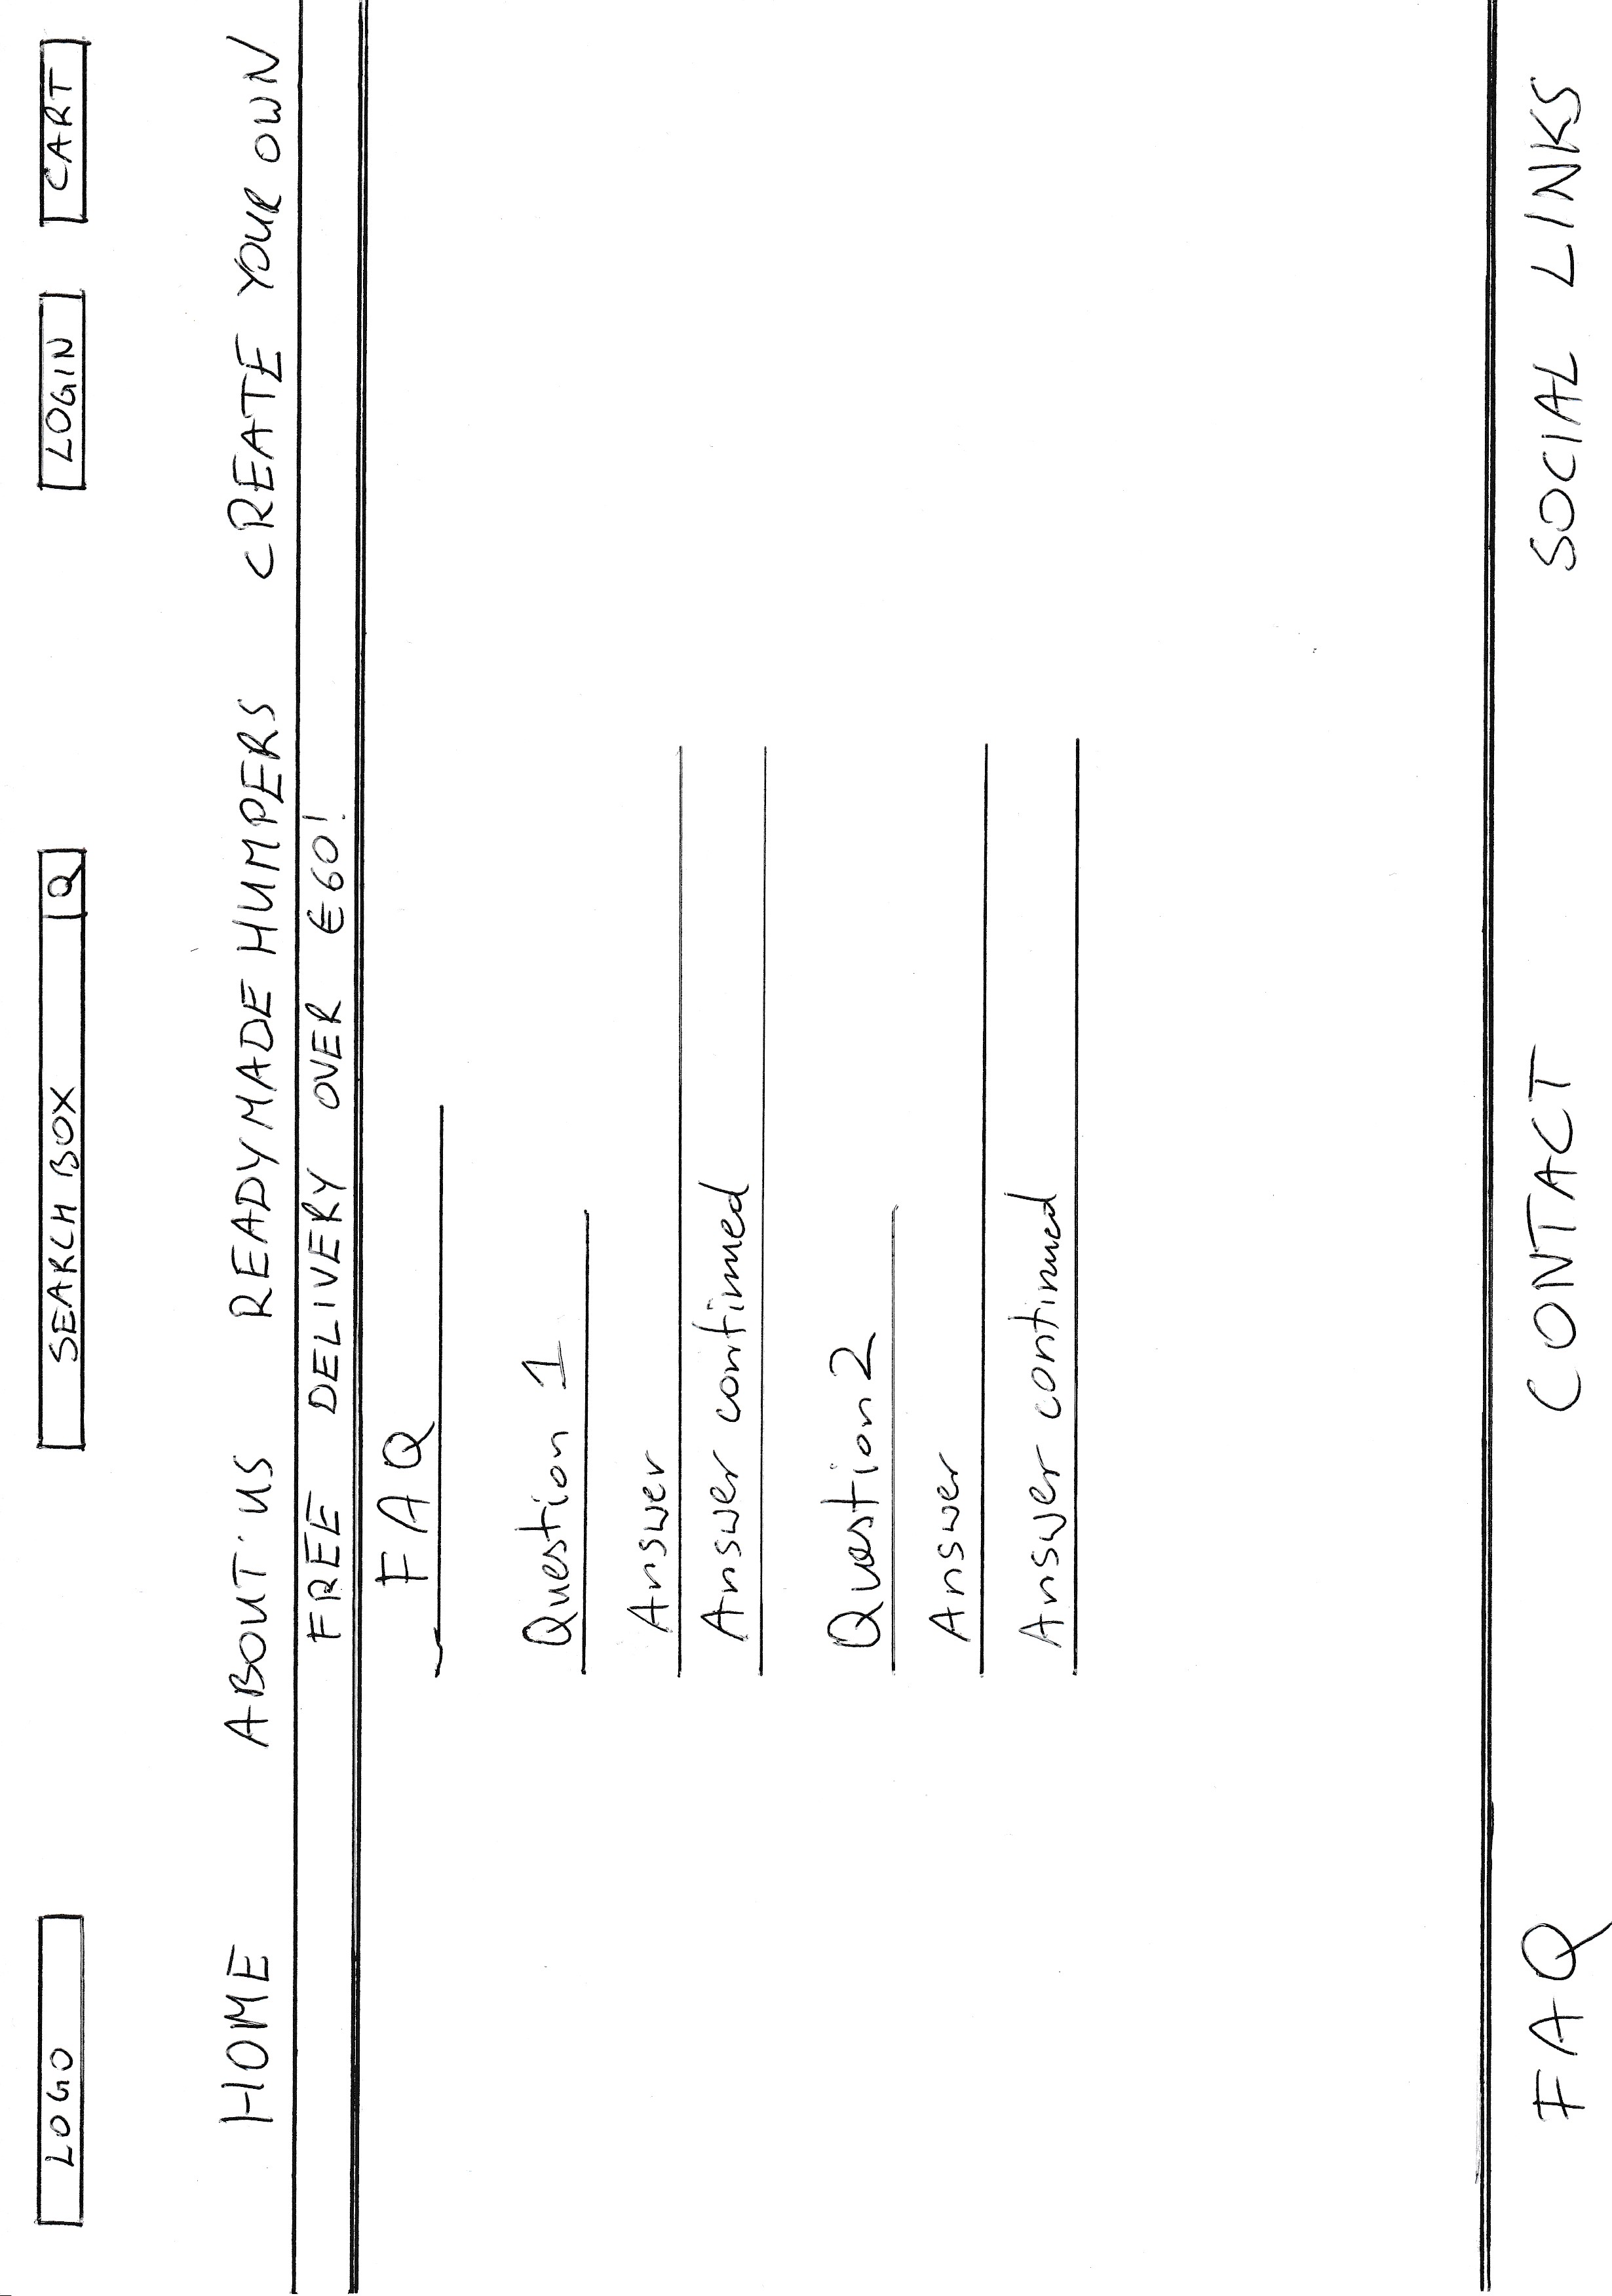 LOGO SEARCH BOX Q LOGIN CART
HOME ABOUT US READYMADE HUMPERS CREATE YOUR OWN
FREE DELIVERY OVER €60!
FAQ
Question 1
Answer
Answer continued
Question 2
Answer
Answer continued
FAQ CONTACT SOCIAL LINKS